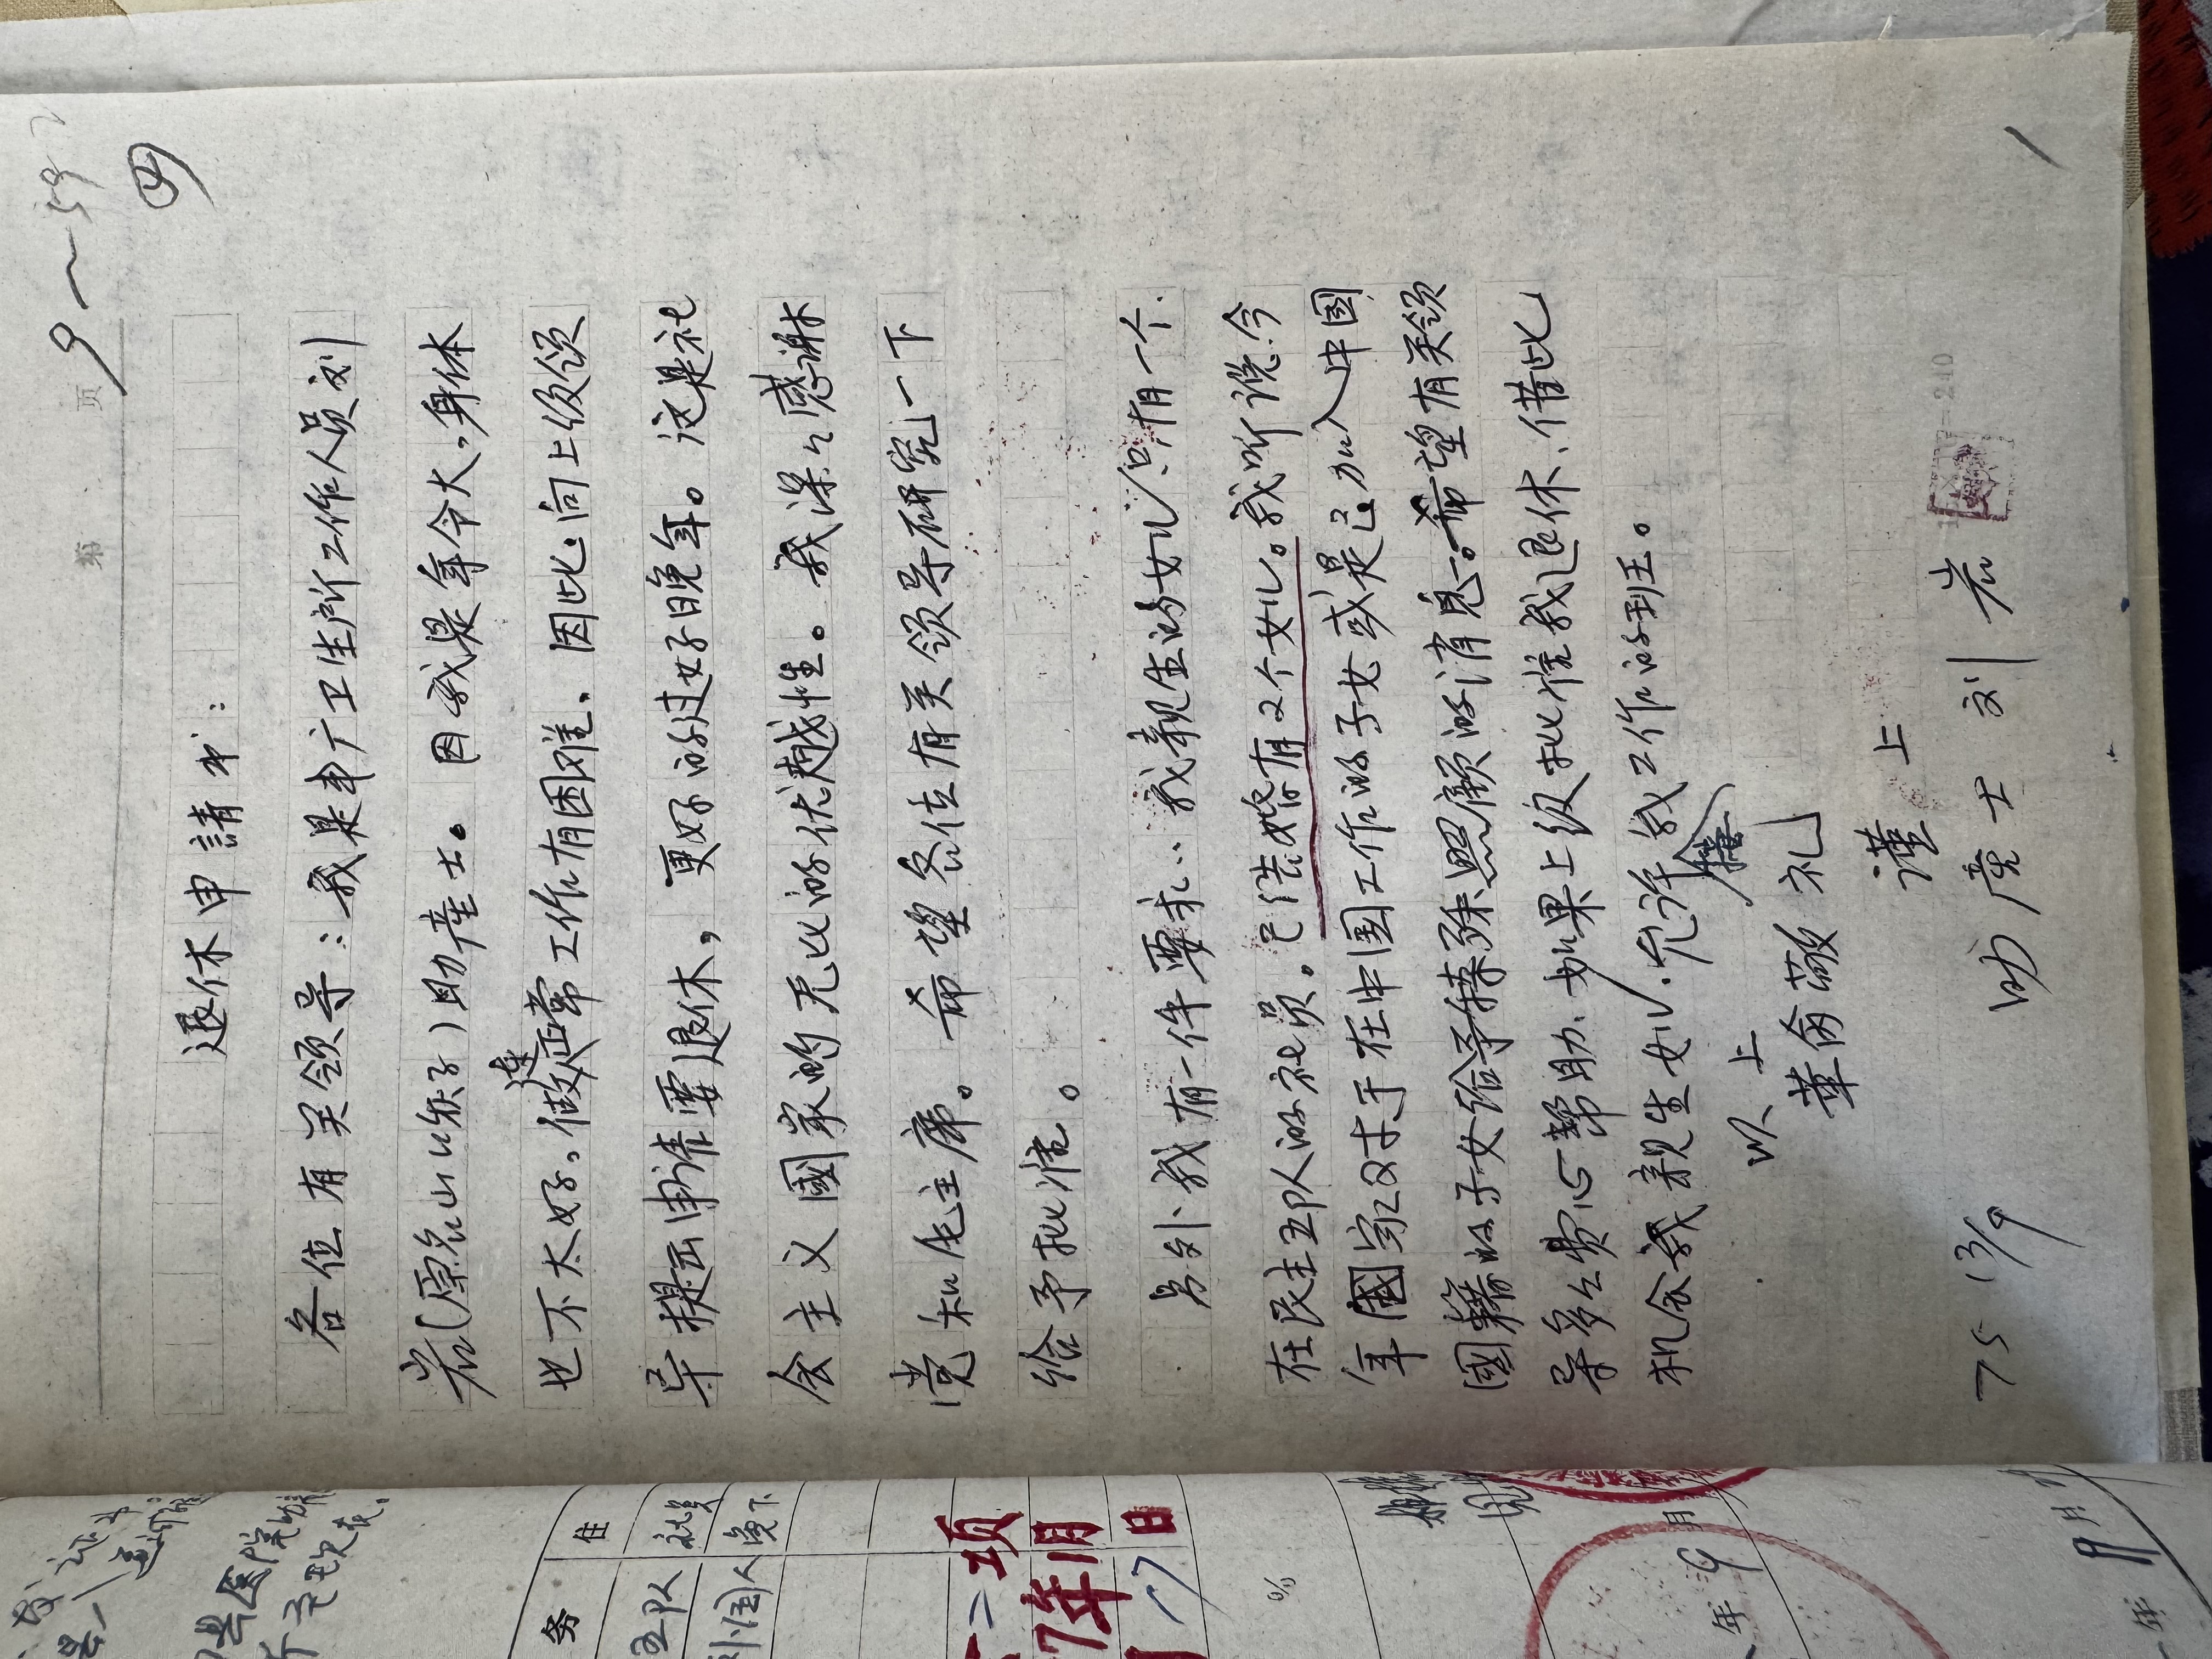 9—59
第 页
四
退休申請书：
各位有关领导：我是本厂卫生所工作人员刘
岩(原名山岐子)助産士。因我是年令大，身体
也不太好。做正常工作有困难、因此向上级领
达
导提出申请要退休，更好的过好晚年。这是社
会主义國家的无比的优越性。我深々感谢
党和毛主席。希望各位有关领导研究一下
给予批准。
另外我有一件要求：我亲生的女儿只有一个
在民主五队的社员。已结婚有2个女儿。我听说今
年國家对于在中国工作的子女或是已加入中国
國籍的子女给予特殊照顾的消息。希望有关领
导多々费心帮助、如果上级批准我退休、借此
机会我親生女儿.允许我工作的到王。
以上
革命敬礼
谨上
助産士 刘岩
75 13/9
240
务 住
五队 社员
外国人
二项
7年1月
17日
%
年 9 月
年 月